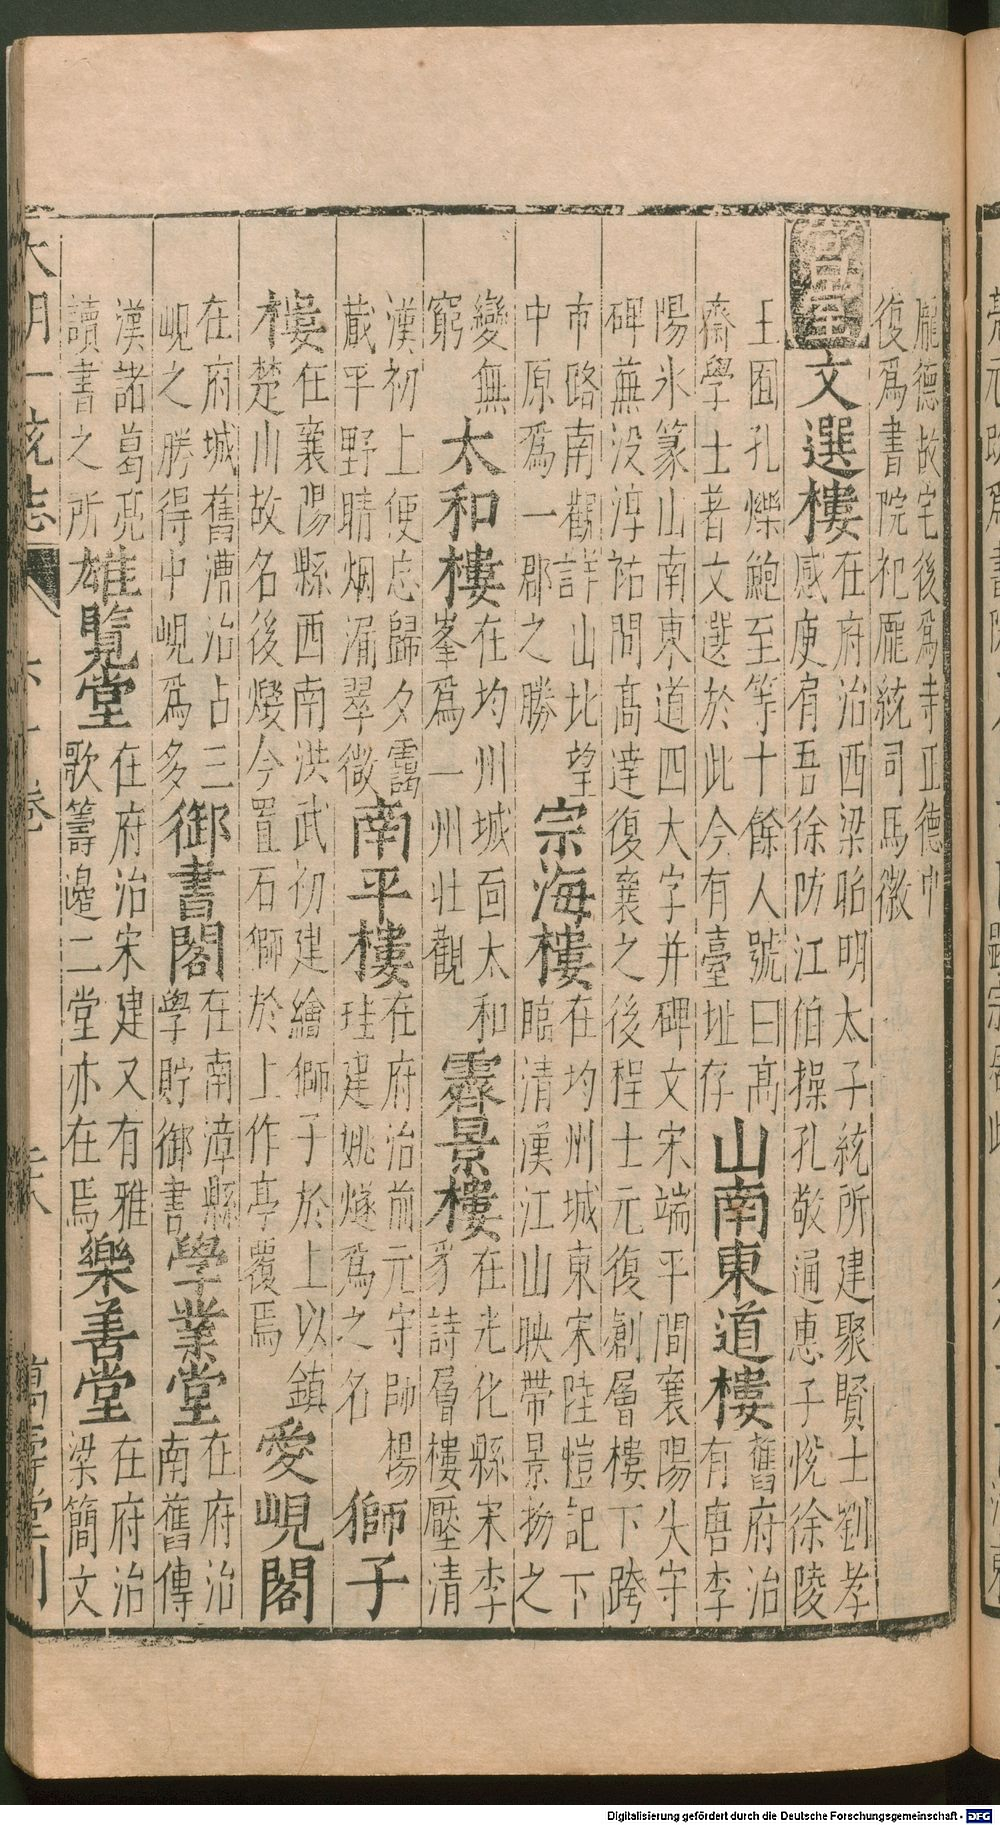 龐德故宅後爲寺正德中
復爲書院祀龐統司馬徽
宮室文選樓在府治西梁昭明太子統所建聚賢士劉孝
威庾肩吾徐防江伯操孔敬通惠子悅徐陵
王囿孔爍鮑至等十餘人號曰高
齋學士著文選於此今有臺址存山南東道樓舊府治
有唐李
陽氷篆山南東道四大字并碑文宋端平間襄陽失守
碑蕪没淳祐間髙達復襄之後程士元復創層樓下跨
市路南觀詳山北望
中原爲一郡之勝宗海樓在均州城東宋陸愷記下
臨清漢江山映帶景物之
變無
窮太和樓在均州城面太和
峯爲一州壯觀霽景樓在光化縣宋李
豸詩層樓壓清
漢初上便忘歸夕靄
蔵平野晴烟漏翠微南平樓在府治前元守帥楊
珪建姚燧爲之名獅子
樓在襄陽縣西南洪武初建繪獅子於上以鎮
楚山故名後燬今置石獅於上作亭覆焉愛峴閣
在府城舊漕治占三
峴之勝得中峴爲多御書閣在南漳縣
學貯御書學業堂在府治
南舊傳
漢諸葛亮
讀書之所雄覽堂在府治宋建又有雅
歌籌邊二堂亦在焉樂善堂在府治
梁簡文
大明一統志 六十卷 萬壽堂刊
Digitalisierung gefördert durch die Deutsche Forschungsgemeinschaft - DFG